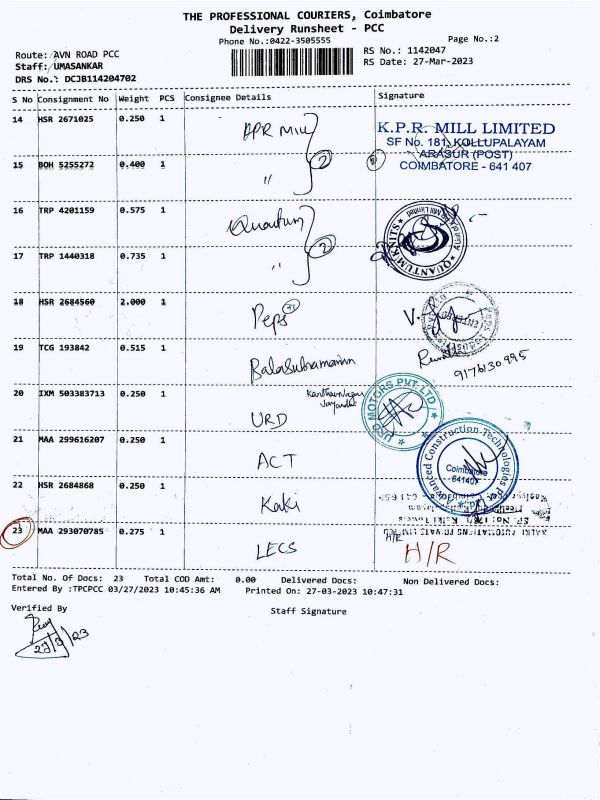 THE PROFESSIONAL COURIERS, Coimbatore
Delivery Runsheet - PCC
Phone No.:0422-3505555
Page No.:2
Route: AVN ROAD PCC
RS No.: 1142047
Staff: UMASANKAR
RS Date: 27-Mar-2023
DRS No.: DCJB114204702
S No Consignment No Weight PCS Consignee Details Signature
14 HSR 2671025 0.250 1 KPR Mill
K.P.R. MILL LIMITED
SF No. 181, KOLLUPALAYAM
ARASUR (POST)
COIMBATORE - 641 407
2
15 BOH 5255272 0.400 1 "
16 TRP 4201159 0.575 1 Quantum
2
QUANTUM KNITS
17 TRP 1440318 0.735 1 "
18 HSR 2684560 2.000 1 Peps
19 TCG 193842 0.515 1 Balasubramanian
9176130995
20 IXM 503383713 0.250 1 URD
URD MOTORS PVT. LTD
21 MAA 299616207 0.250 1 ACT
Advanced Construction Technologies
Coimbatore
641407
22 HSR 2684868 0.250 1 Kaki
23 MAA 293070785 0.275 1 LECS H/R
H/R
Total No. Of Docs: 23 Total COD Amt: 0.00 Delivered Docs: Non Delivered Docs:
Entered By :TPCPCC 03/27/2023 10:45:36 AM Printed On: 27-03-2023 10:47:31
Verified By
Staff Signature
27/3/23